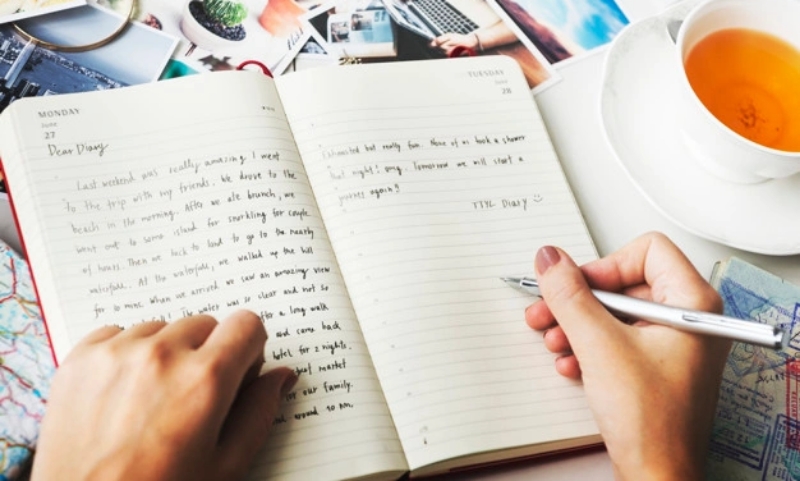 MONDAY
June
27
Dear Diary
Last weekend was really amazing I went
to the trip with my friends. We drove to the
beach in the morning. After we ate brunch, we
went out to some island for snorkling for couple
of hours. Then we back to land to go to the nearby
waterfall. At the waterfall, we walked up the hill
for 10 mins. When we arrived we saw an amazing view
The water was so clear and not so
after a long walk
and came back
hotel for 2 nights.
market
for our family.
around 10 pm.
TUESDAY
June
28
Exhausted but really fun. None of us took a shower
last night! omg. Tomorrow we will start a
journey again!
TTYL Diary